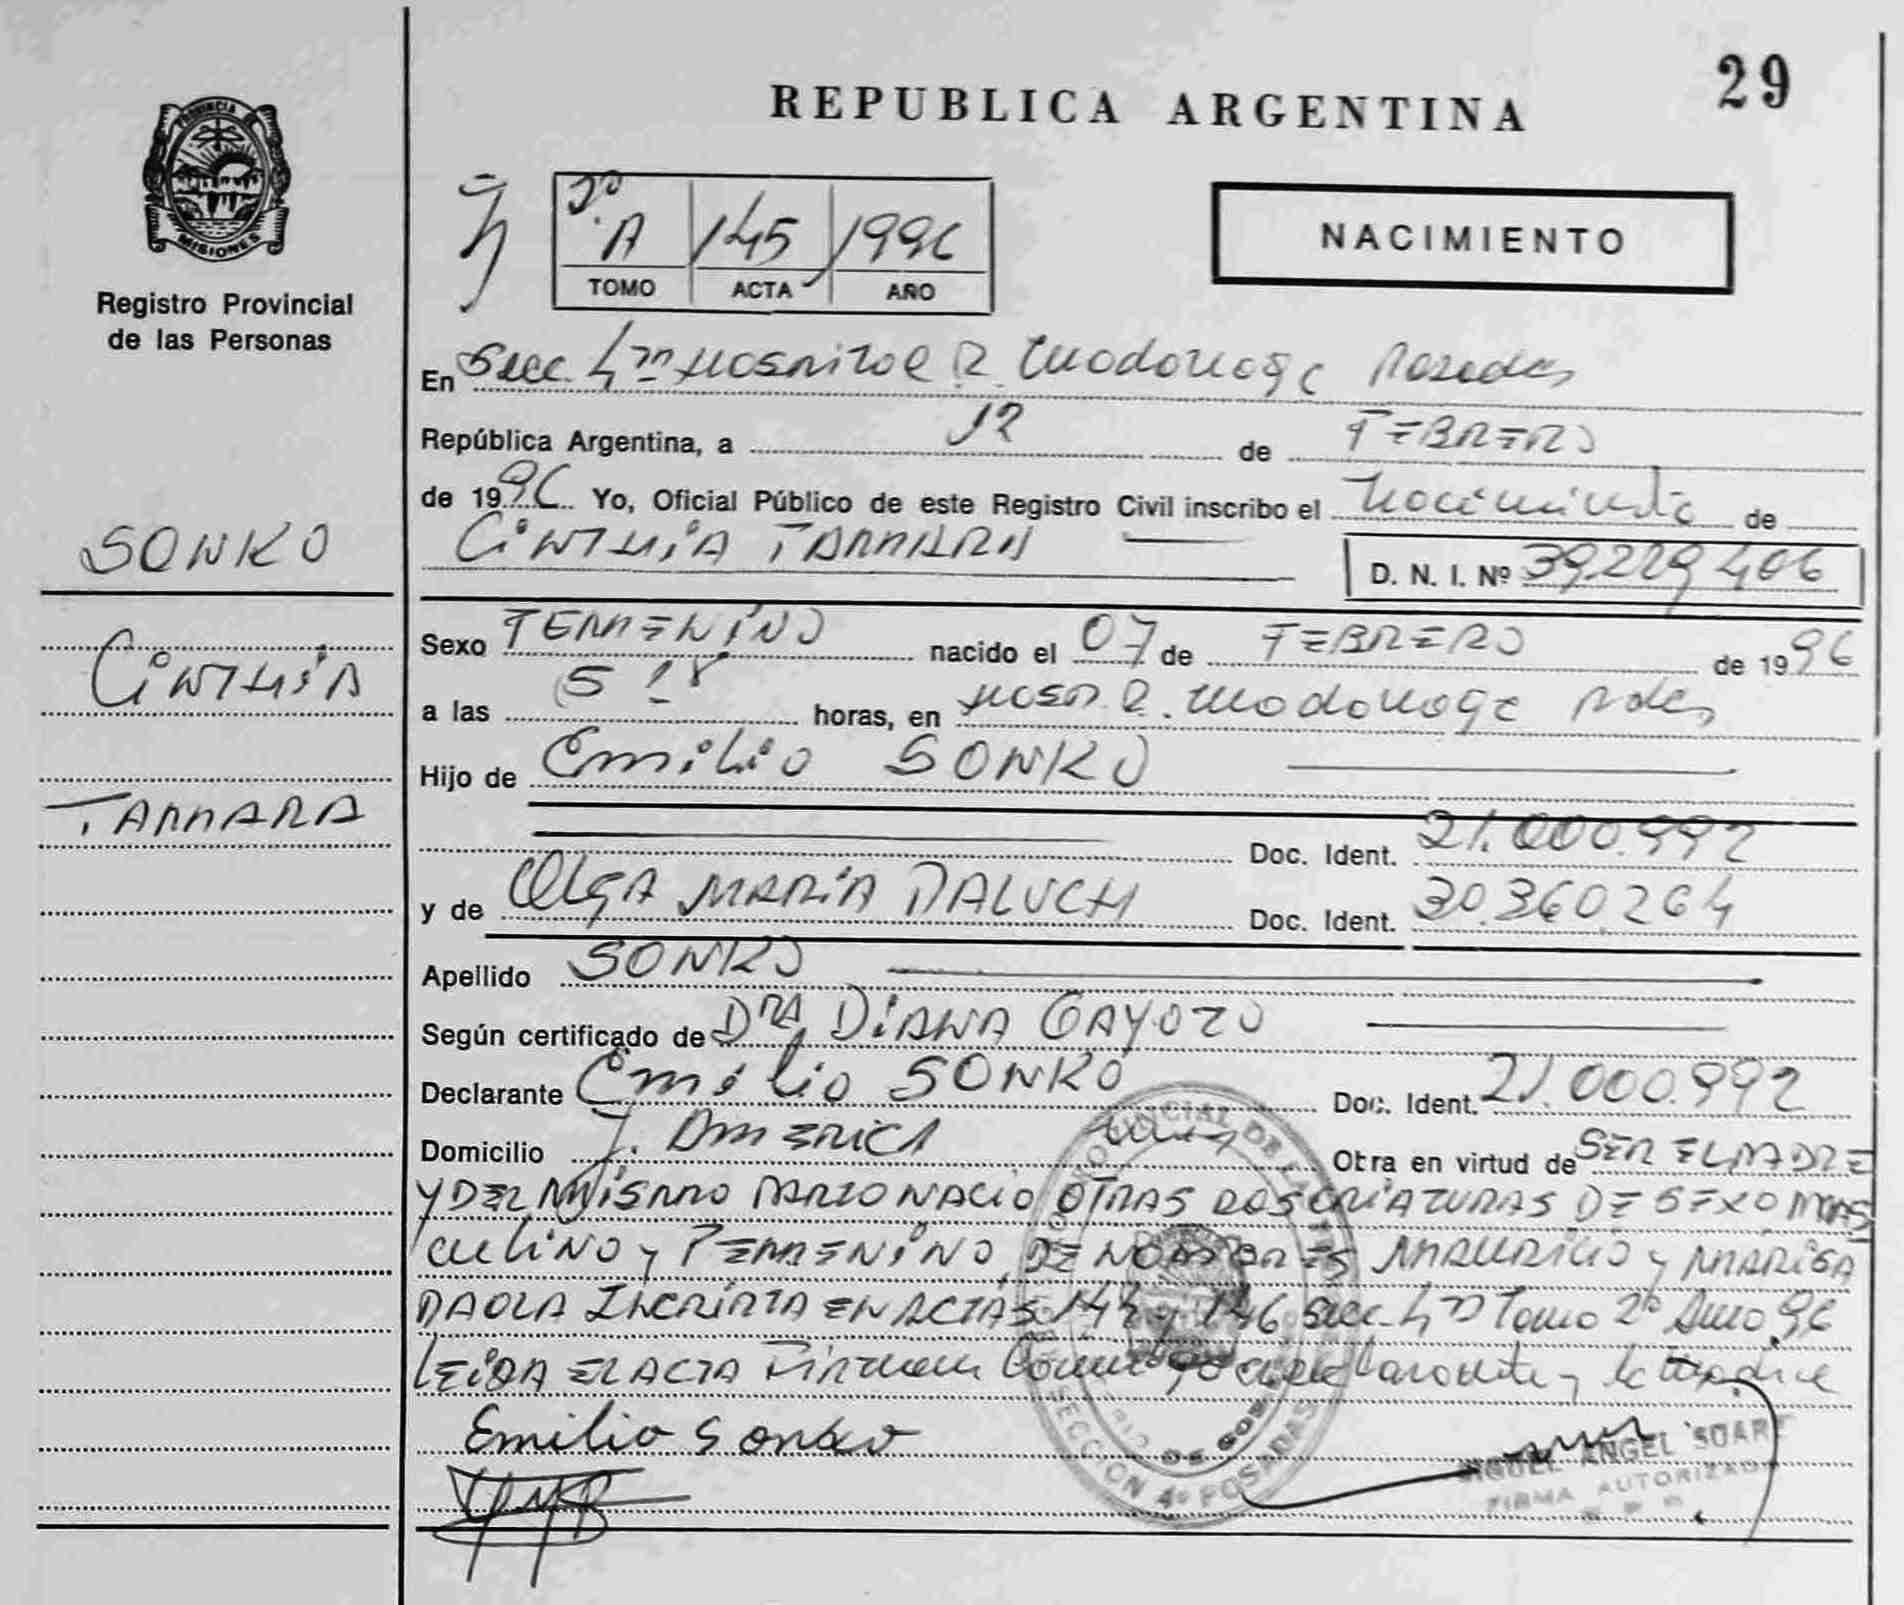 29
REPUBLICA ARGENTINA
PROVINCIA
MISIONES
Registro Provincial
de las Personas
2º
A 145 1996
TOMO ACTA AÑO
NACIMIENTO
En Secc. 4ta Hospital R. Madariaga Posadas
República Argentina, a 12 de FEBRERO
de 1996 Yo, Oficial Público de este Registro Civil inscribo el Nacimiento de
SONKO
CINTHIA TAMARA
D. N. I. Nº 39.229.406
Sexo FEMENINO nacido el 07 de FEBRERO de 1996
CINTHIA
a las 5 18 horas, en Hosp. R. Madariaga Pdas
Hijo de Emilio SONKO
TAMARA
Doc. Ident. 21.000.992
y de Olga MARIA PALUCH Doc. Ident. 30.360.264
Apellido SONKO
Según certificado de DRA DIANA GAYOZO
Declarante Emilio SONKO Doc. Ident. 21.000.992
Domicilio J. AMERICA Obra en virtud de SER EL PADRE
Y DEL MISMO PARTO NACIO OTRAS DOS CRIATURAS DE SEXO MAS
CULINO y FEMENINO, DE NOMBRES MAURICIO y MARISA
PAOLA INCRIPTA EN ACTAS 144 y 146 Secc. 4ta Tomo 2º Año 96
LEIDA EL ACTA Firman Conmigo el declarante y la madre
Emilio Sonko
SECCION 4º POSADAS
MIGUEL ANGEL SUAREZ
FIRMA AUTORIZADA